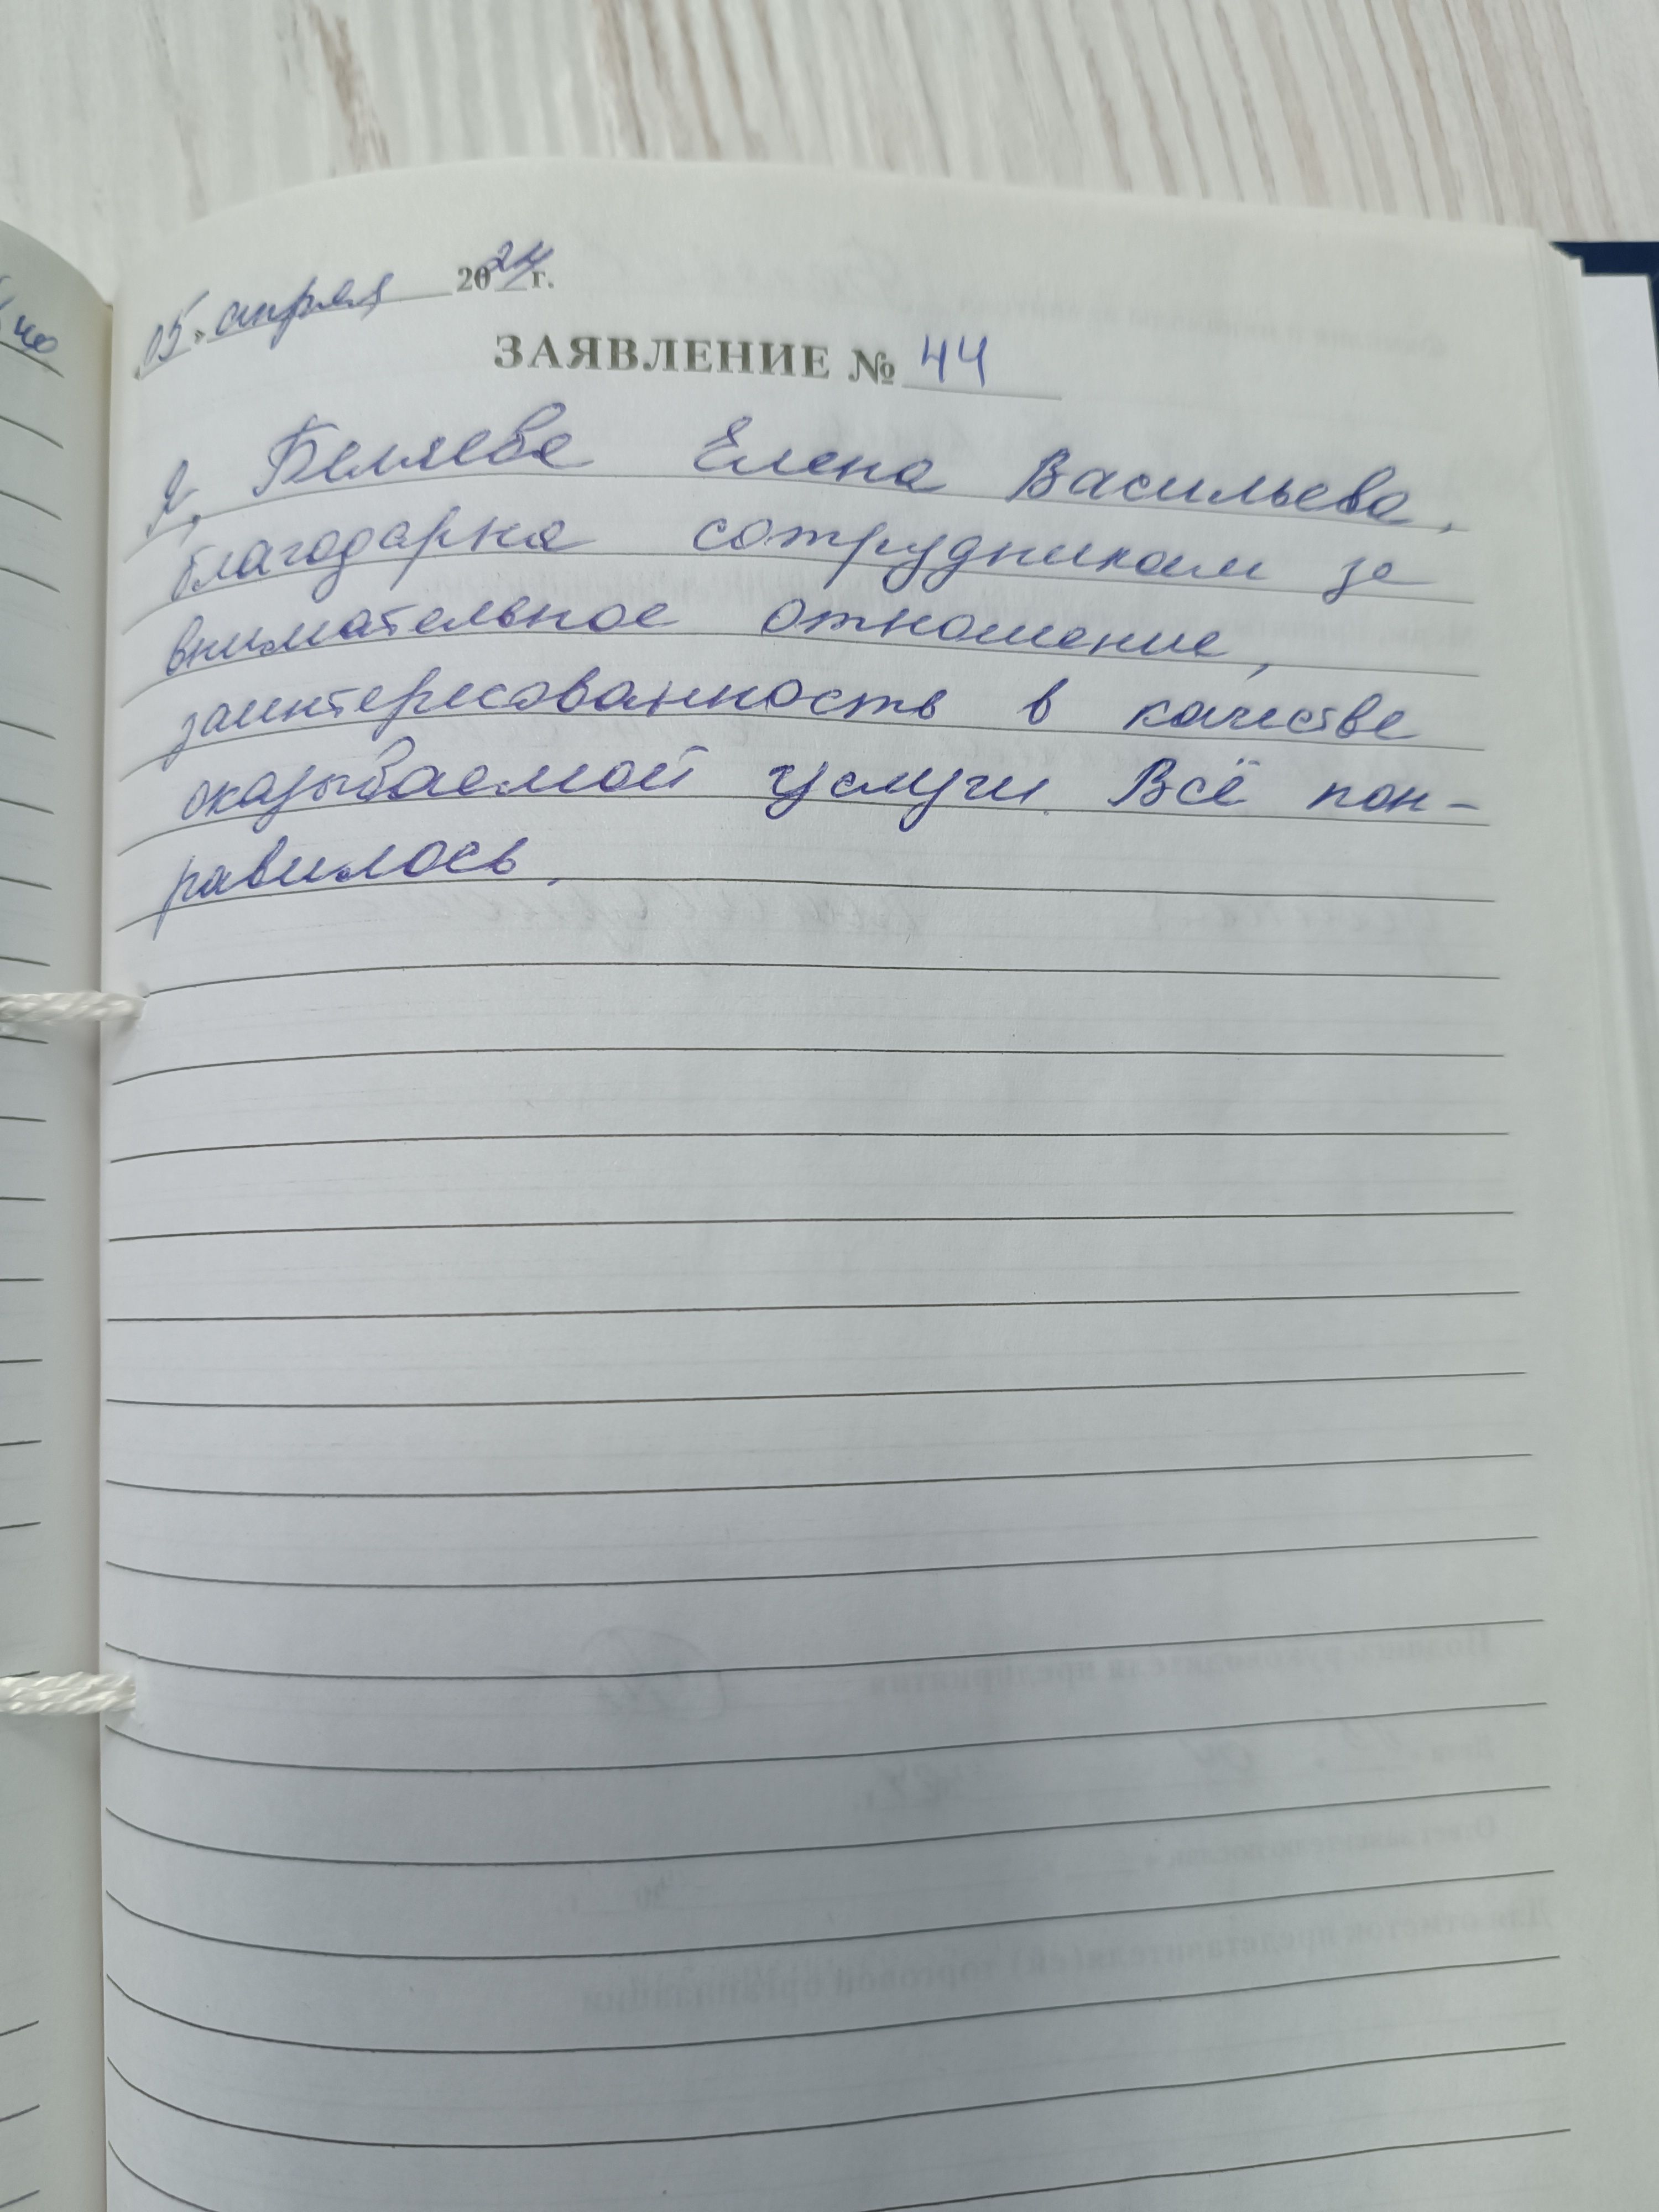 05. апреля 2024г.
ЗАЯВЛЕНИЕ № 44
Я, Беляева Елена Васильева,
благодарна сотрудникам за
внимательное отношение,
заинтересованность в качестве
оказываемой услуги. Всё пон-
равилось.